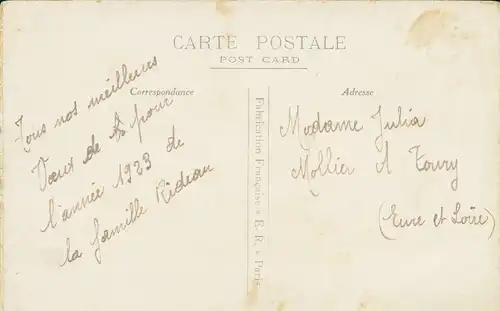 CARTE POSTALE
POST CARD
Correspondance
Adresse
Tous nos meilleurs
Vœux de pour
l'année 1923 de
la famille Rideau
Fabrication Française - E. R. - Paris
Madame Julia
Mollier A Toury
(Eure et Loire)